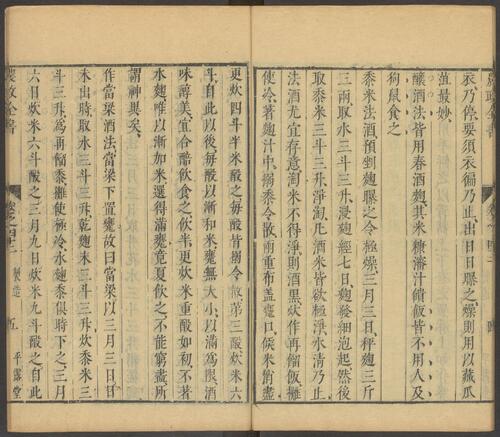 衣乃停要須衣徧乃止出日日曝之燥則用以藏瓜
菹最妙
釀酒法皆用春酒麴其米糠瀋汁饋飯皆不用人及
狗鼠食之
黍米法酒預剉麴曝之令極燥三月三日秤麴三斤
三兩取水三斗三升浸麴經七日麴發細泡起然後
取黍米三斗三升淨淘凡酒米皆欲極淨水清乃止
法酒尤宜存意淘米不得淨則酒黑炊作再餾飯攤
使冷著麴汁中搦黍令散兩重布蓋甕口候米消盡
更炊四斗半米酘之每酘皆搦令散第三酘炊米六
斗自此以後每酘以漸和米甕無大小以滿為限酒
味醇美宜合醅飲食之飲半更炊米重酘如初不著
水麴唯以漸加米還得滿甕竟夏飲之不能窮盡所
謂神異矣
作當梁酒法當梁下置甕故曰當梁以三月三日日
未出時取水三斗三升乾麴末三斗三升炊黍米三
斗三升為再餾黍攤使極冷水麴黍俱時下之三月
六日炊米六斗酘之三月九日炊米九斗酘之自此
農政全書 卷之四十二 製造 五 平露堂